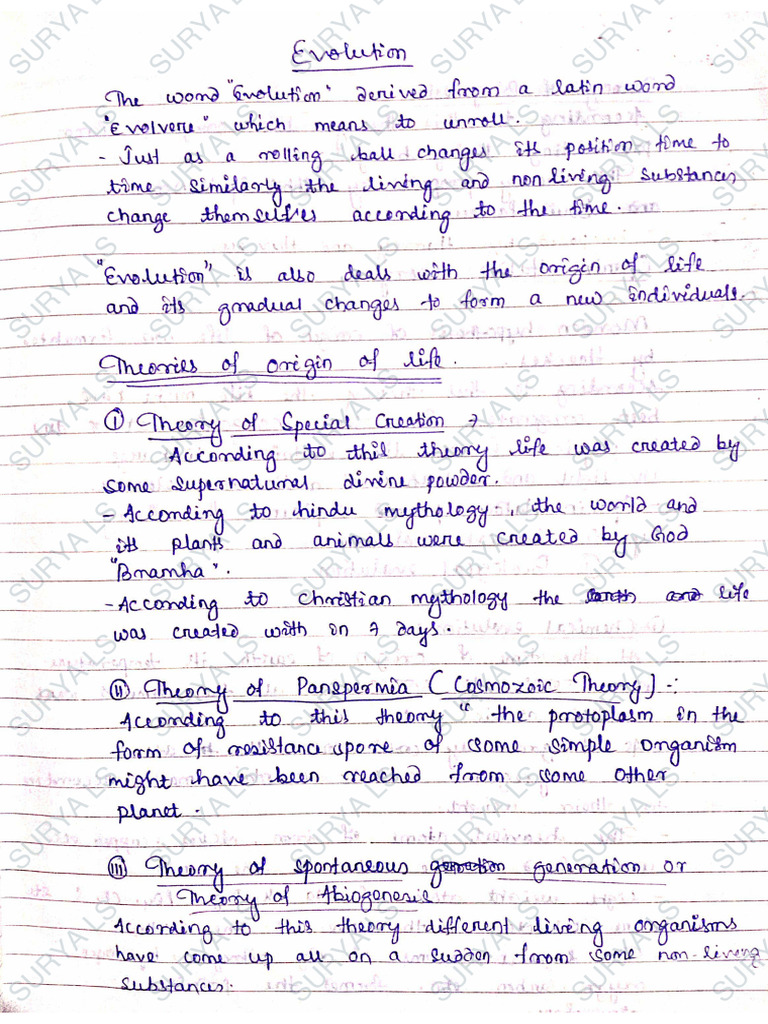 Evolution
The word "Evolution" derived from a latin word
"Evolvere" which means to unroll.
- Just as a rolling ball changes its position time to
time similarly the living and non living substances
change themselves according to the time.
"Evolution" is also deals with the origin of life
and its gradual changes to form a new individuals.
Theories of origin of life.
(I) Theory of Special Creation →
According to this theory life was created by
some supernatural divine powder.
- According to hindu mythology, the world and
its plants and animals were created by God
"Bramha".
- According to Christian mythology the earth and life
was created with in 7 days.
(II) Theory of Panspermia (Cosmozoic Theory) -:
According to this theory " the protoplasm in the
form of resistance spore of some simple organism
might have been reached from some other
planet.
(III) Theory of spontaneous generation or
Theory of Abiogenesis
According to this theory different living organisms
have come up all on a sudden from some non-living
substances.
SURYA LS